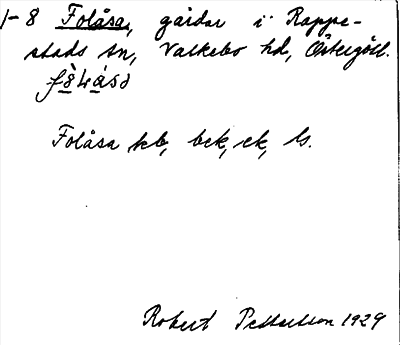 1-8 Folåsa, gårdar i Rappe-
stads sn, Valkebo hd, Östergötl.
Folåsa kb, bck, ck, ls.
Robert Pettersson 1929